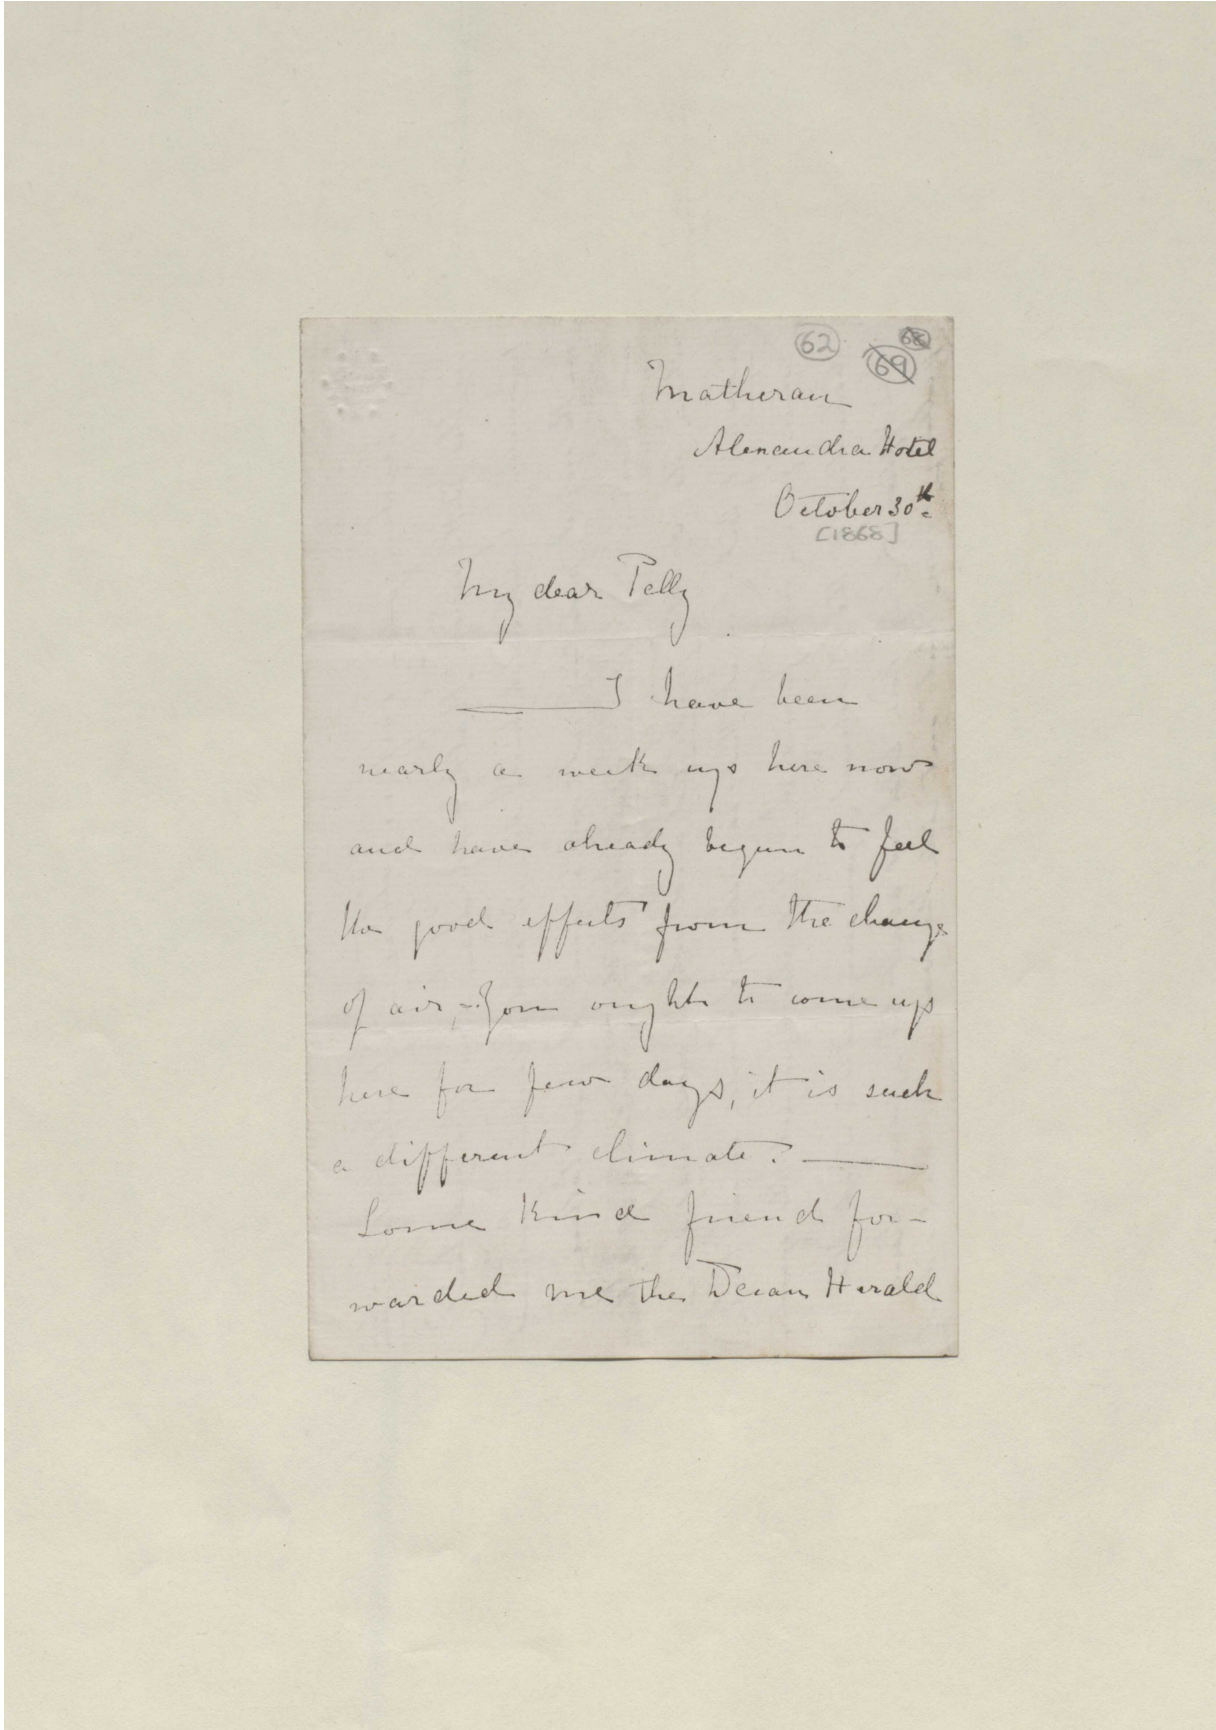 62
68
69
Matheran
Alexandra Hotel
October 30th
[1868]
My dear Pelly
I have been
nearly a week up here now
and have already begun to feel
the good effects from the change
of air, - You ought to come up
here for few days, it is such
a different climate. —
Some kind friend for-
warded me the Decan Herald